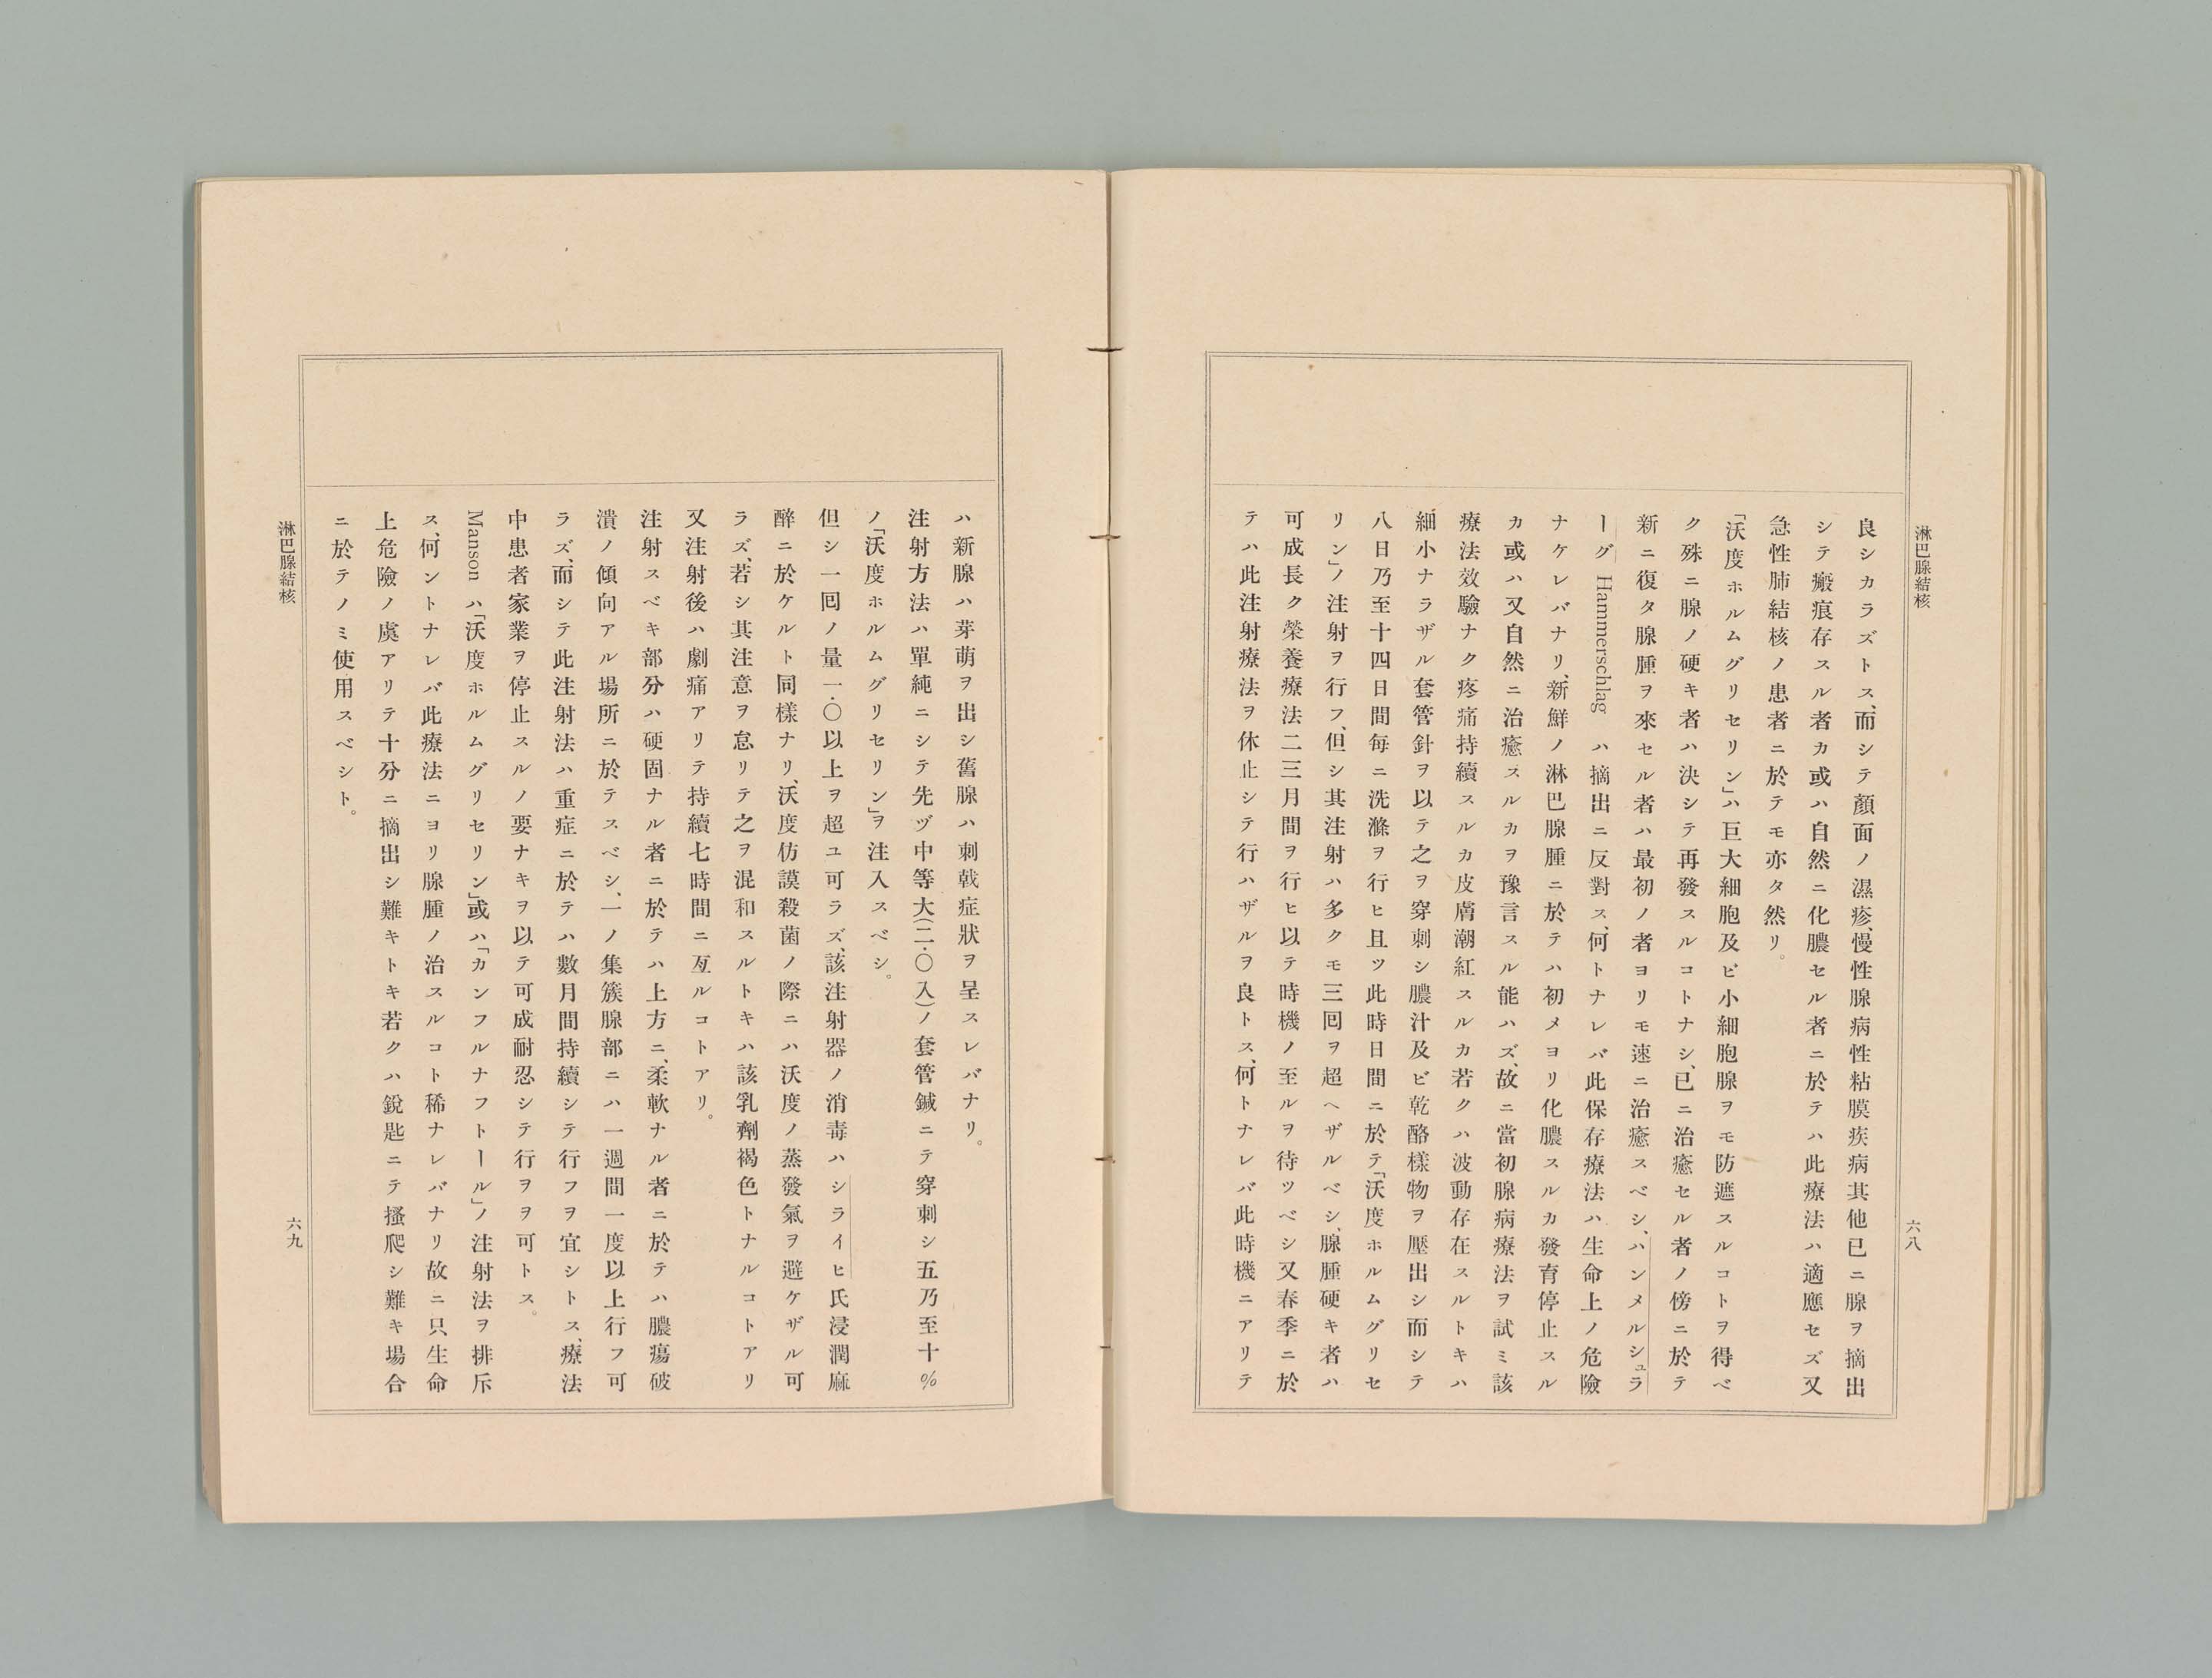 淋巴腺結核
六八
良シカラズトス、而シテ顏面ノ濕疹、慢性腺病性粘膜疾病其他已ニ腺ヲ摘出
シテ瘢痕存スル者カ或ハ自然ニ化膿セル者ニ於テハ此療法ハ適應セズ又
急性肺結核ノ患者ニ於テモ亦タ然リ。
「沃度ホルムグリセリン」ハ巨大細胞及ビ小細胞腺ヲモ防遮スルコトヲ得ベ
ク殊ニ腺ノ硬キ者ハ決シテ再發スルコトナシ、已ニ治癒セル者ノ傍ニ於テ
新ニ復タ腺腫ヲ來セル者ハ最初ノ者ヨリモ速ニ治癒スベシ、ハンメルシュラ
ーグ Hammerschlag ハ摘出ニ反對ス、何トナレバ此保存療法ハ生命上ノ危險
ナケレバナリ、新鮮ノ淋巴腺腫ニ於テハ初メヨリ化膿スルカ發育停止スル
カ或ハ又自然ニ治癒スルカヲ豫言スル能ハズ、故ニ當初腺病療法ヲ試ミ該
療法效驗ナク疼痛持續スルカ皮膚潮紅スルカ若クハ波動存在スルトキハ
細小ナラザル套管針ヲ以テ之ヲ穿刺シ膿汁及ビ乾酪樣物ヲ壓出シ而シテ
八日乃至十四日間每ニ洗滌ヲ行ヒ且ツ此時日間ニ於テ「沃度ホルムグリセ
リン」ノ注射ヲ行フ、但シ其注射ハ多クモ三囘ヲ超ヘザルベシ、腺腫硬キ者ハ
可成長ク榮養療法二三月間ヲ行ヒ以テ時機ノ至ルヲ待ツベシ又春季ニ於
テハ此注射療法ヲ休止シテ行ハザルヲ良トス、何トナレバ此時機ニアリテ
ハ新腺ハ芽萌ヲ出シ舊腺ハ刺戟症狀ヲ呈スレバナリ。
注射方法ハ單純ニシテ先ヅ中等大(二・〇入)ノ套管鍼ニテ穿刺シ五乃至十%
ノ「沃度ホルムグリセリン」ヲ注入スベシ。
但シ一囘ノ量一・〇以上ヲ超ユ可ラズ、該注射器ノ消毒ハシライヒ氏浸潤麻
醉ニ於ケルト同樣ナリ、沃度仿謨殺菌ノ際ニハ沃度ノ蒸發氣ヲ避ケザル可
ラズ、若シ其注意ヲ怠リテ之ヲ混和スルトキハ該乳劑褐色トナルコトアリ
又注射後ハ劇痛アリテ持續七時間ニ亙ルコトアリ。
注射スベキ部分ハ硬固ナル者ニ於テハ上方ニ、柔軟ナル者ニ於テハ膿瘍破
潰ノ傾向アル場所ニ於テスベシ、一ノ集簇腺部ニハ一週間一度以上行フ可
ラズ、而シテ此注射法ハ重症ニ於テハ數月間持續シテ行フヲ宜シトス、療法
中患者家業ヲ停止スルノ要ナキヲ以テ可成耐忍シテ行ヲヲ可トス。
Manson ハ「沃度ホルムグリセリン」或ハ「カンフルナフトール」ノ注射法ヲ排斥
ス、何ントナレバ此療法ニヨリ腺腫ノ治スルコト稀ナレバナリ故ニ只生命
上危險ノ虞アリテ十分ニ摘出シ難キトキ若クハ銳匙ニテ搔爬シ難キ場合
ニ於テノミ使用スベシト。
淋巴腺結核
六九